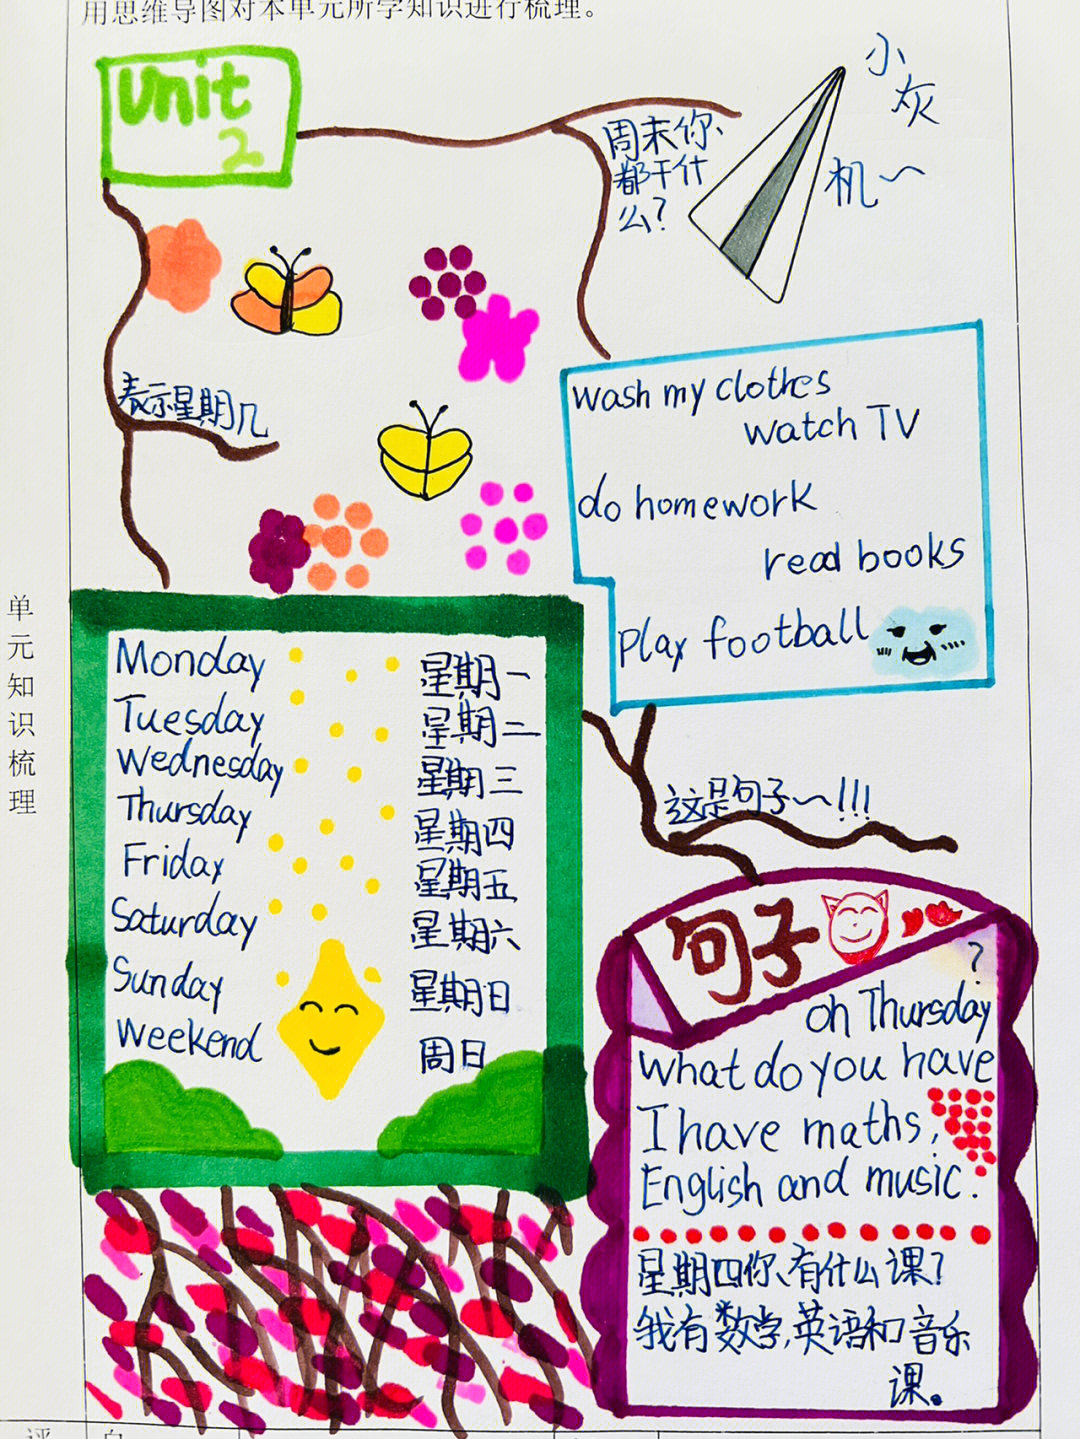 用思维导图对本单元所学知识进行梳理。
Unit
2
小
灰
机~
周末你
都干什
么?
表示星期几
wash my clothes
watch TV
do homework
read books
Play football
单元知识梳理
Monday 星期一
Tuesday 星期二
Wednesday 星期三
Thursday 星期四
Friday 星期五
Saturday 星期六
Sunday 星期日
Weekend 周日
这是句子~!!!
句子
?
on Thursday
What do you have
I have maths,
English and music.
星期四你有什么课?
我有数学,英语和音乐
课。